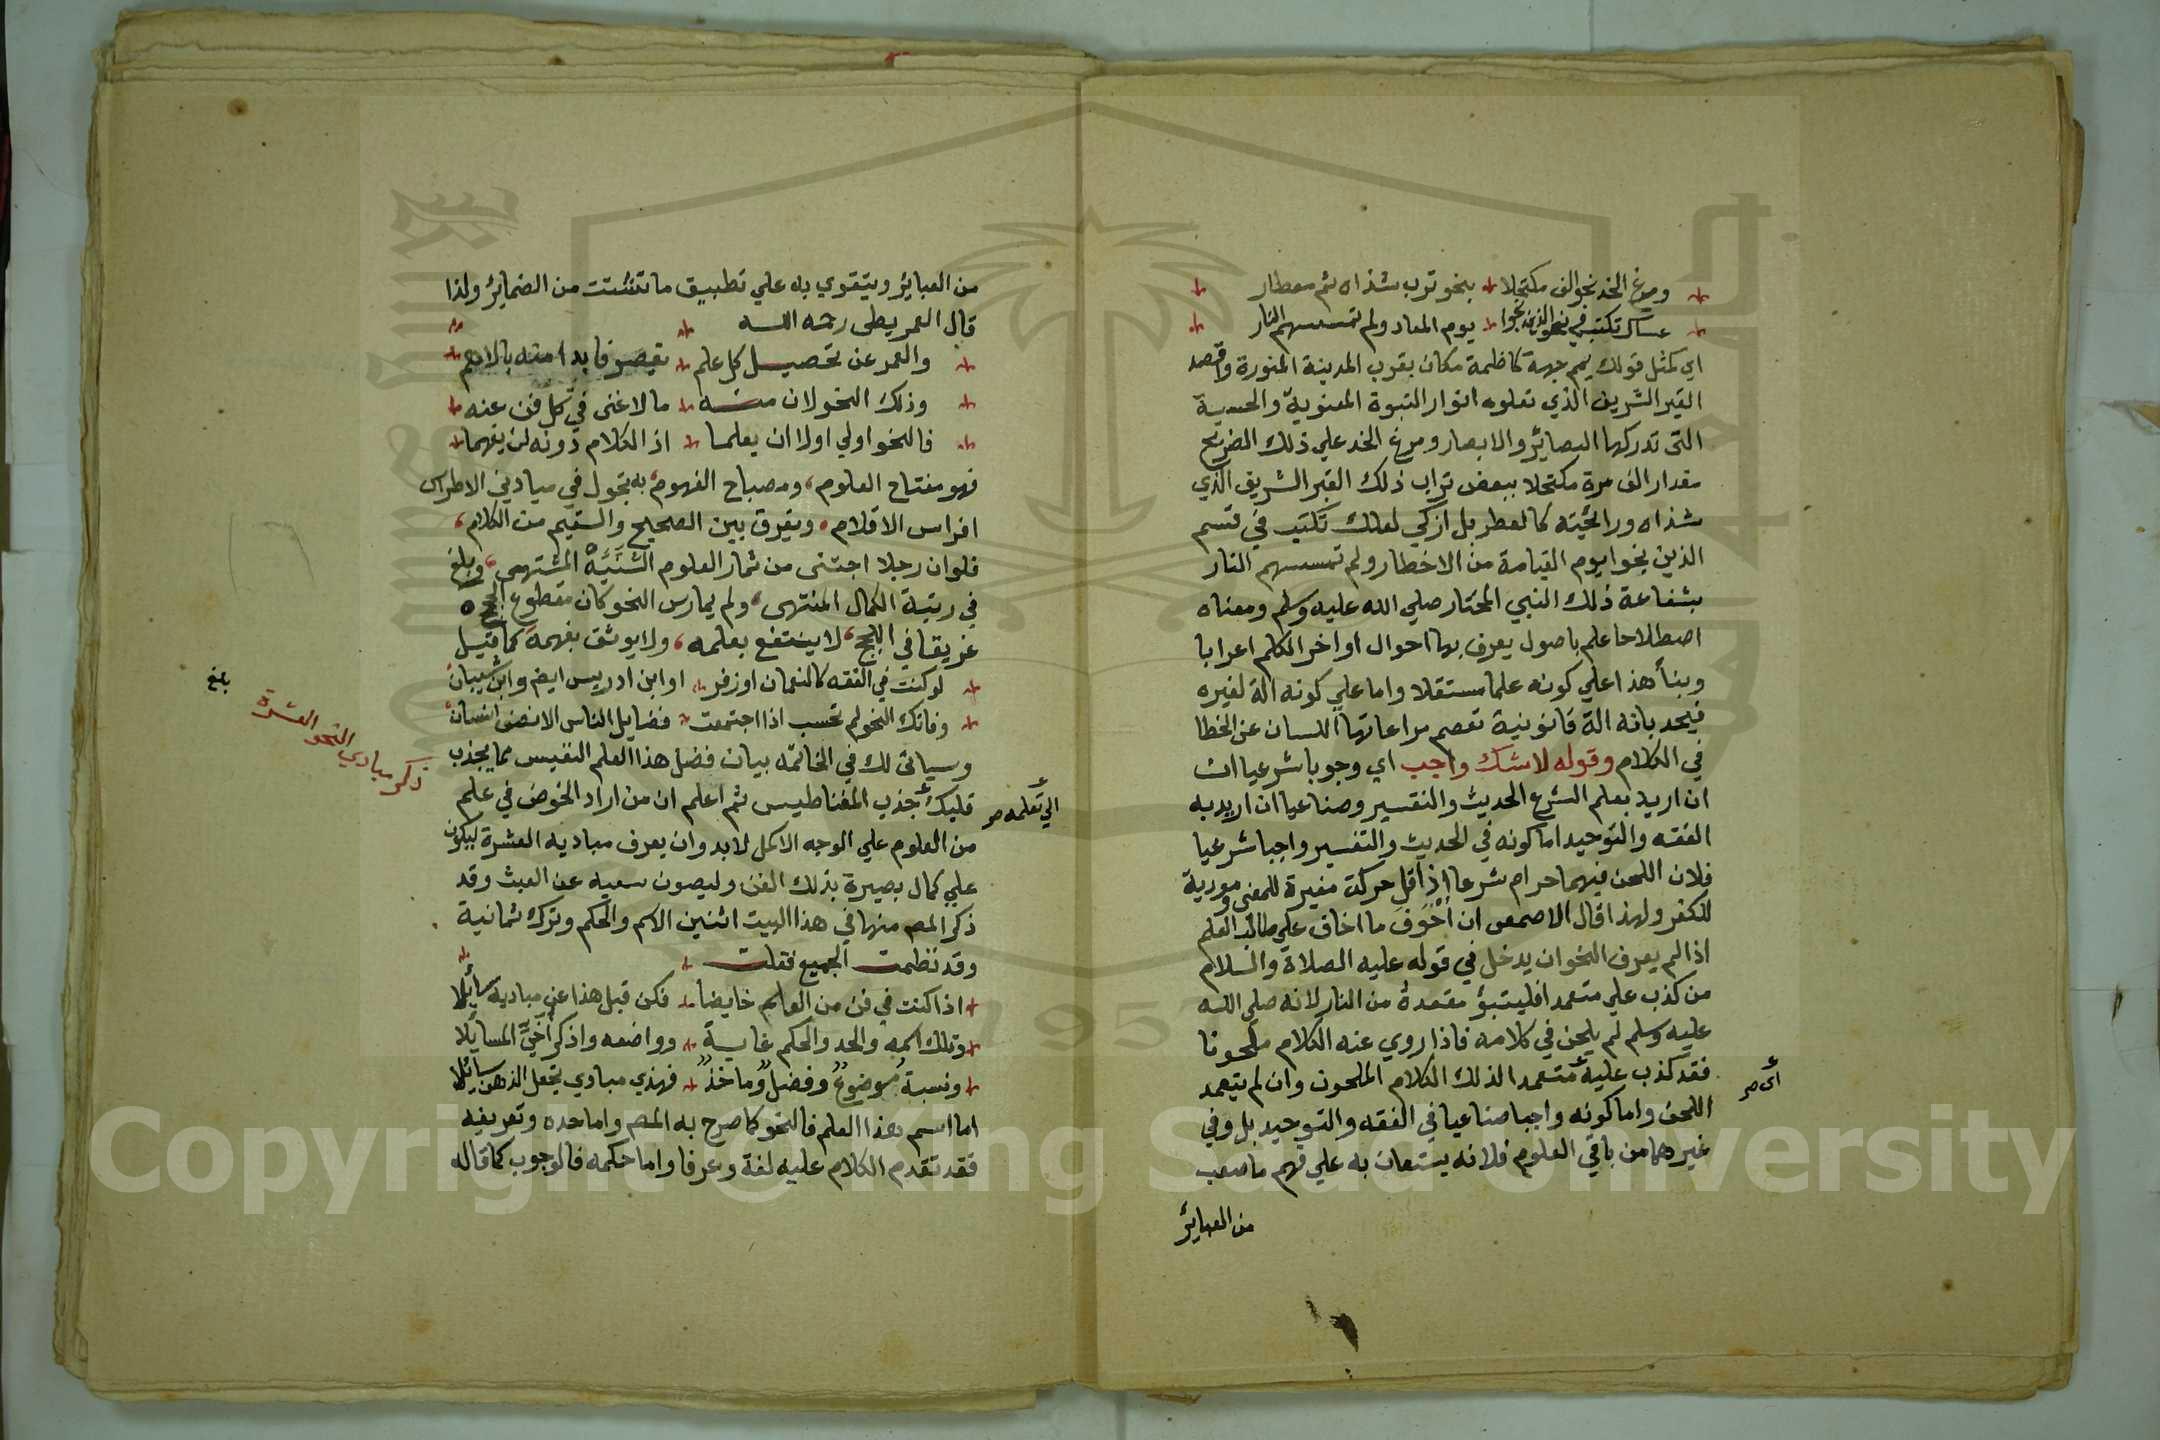 ومرغ الخد نحو الف مكتحلا بنحو ترب شذاه ثم معطار
عساك تكتب في نحو الذين نجوا يوم المعاد ولم تمسسهم النار
اي كمثل قولك يمم جهة كاظمة مكان بقرب المدينة المنورة واقصد
القبر الشريف الذي تعلوه انوار النبوة المعنوية والحسية
التي تدركها البصائر والابصار ومرغ الخد علي ذلك الضريح
مقدار الف مرة مكتحلا ببعض تراب ذلك القبر الشريف الذي
شذاه ورائحته كالعطر بل ازكي لعلك تكتب في قسم
الذين نجوا يوم القيامة من الاخطار ولم تمسسهم النار
بشفاعة ذلك النبي المختار صلي الله عليه وسلم ومعناه
اصطلاحا علم باصول يعرف بها احوال اواخر الكلم اعرابا
وبنأ هذا علي كونه علما مستقلا واما علي كونه الة لغيره
فيحد بانه الة قانونية تعصم مراعاتها اللسان عن الخطا
في الكلام وقوله لا شك واجب اي وجوبا شرعيا ان
ان اريد بعلم الشرع الحديث والتفسير وصناعيا ان اريد به
الفقه والتوحيد اما كونه في الحديث والتفسير واجبا شرعيا
فلان اللحن فيهما حرام شرعا اذ اقل حركة مغيرة للمعنى ومودية
للكفر ولهذا قال الاصمعي ان اخوف ما اخاف علي طالب العلم
اذا لم يعرف النحو ان يدخل في قوله عليه الصلاة والسلام
من كذب علي متعمدا فليتبؤ مقعدة من النار لانه صلي الله
عليه وسلم لم يلحن في كلامه فاذا روي عنه الكلام ملحونا
فقد كذب عليه متعمدا لذلك الكلام الملحون وان لم يتعمد
اي صح
اللحن واما كونه واجبا صناعيا في الفقه والتوحيد بل وفي
غيرهما من باقي العلوم فلانه يستعان به علي فهم ما صعب
من العبائر
من العبائر ويتقوي به علي تطبيق ما تشتت من الضمائر ولذا
قال العمريطي رحمه الله
والعمر عن تحصيل كل علم يقصر فابدا منه بالاهم
وذلك النحو لان منه ما لا غنى في كل فن عنه
فالنحو اولي اولا ان يعلما اذ الكلام دونه لن يفهما
فهو مفتاح العلوم ومصباح الفهوم به تجول في ميادين الاطراس
افراس الاقلام ويفرق بين الصحيح والسقيم من الكلام
فلو ان رجلا اجتنى من ثمار العلوم الشهية المشتهي وبلغ
في رتبة الكمال المنتهى ولم يمارس النحو كان مقطوع الحجج
غريقا في اللجج لا ينتفع بعلمه ولا يوثق بفهمه كما قيل
لو كنت في الفقه كالنعمان او زفر او ابن ادريس ايضا وابن شيبان
وفاتك النحو لم تحسب اذا اجتمعت فضايل الناس الا نصف انسان
وسياتي لك في الخاتمه بيان فضل هذا العلم النفيس مما يجذب
قلبك جذب المغناطيس ثم اعلم ان من اراد الخوض في علم
الي تعلمه صح
من العلوم علي الوجه الاكمل لا بد وان يعرف مباديه العشرة ليكون
علي كمال بصيرة بذلك الفن وليصون سعيه عن العبث وقد
ذكر المص منها في هذا البيت اثنين الاسم والحكم وترك ثمانية
وقد نظمت الجميع فقلت
اذا كنت في فن من العلم خايضا فكن قبل هذا عن مباديه سائلا
وتلك اسمه والحد والحكم غاية وواضعه واذكر اخي المسايلا
ونسبة موضوع وفضل وماخذ فهذي مبادي تجعل الذهن سائلا
اما اسم هذا العلم فالنحو كما صرح به المص واما حده وتعريفه
فقد تقدم الكلام عليه لغة وعرفا واما حكمه فالوجوب كما قاله
ذكر مبادي النحو العشرة
بلغ
Copyright © King Saud University
1957